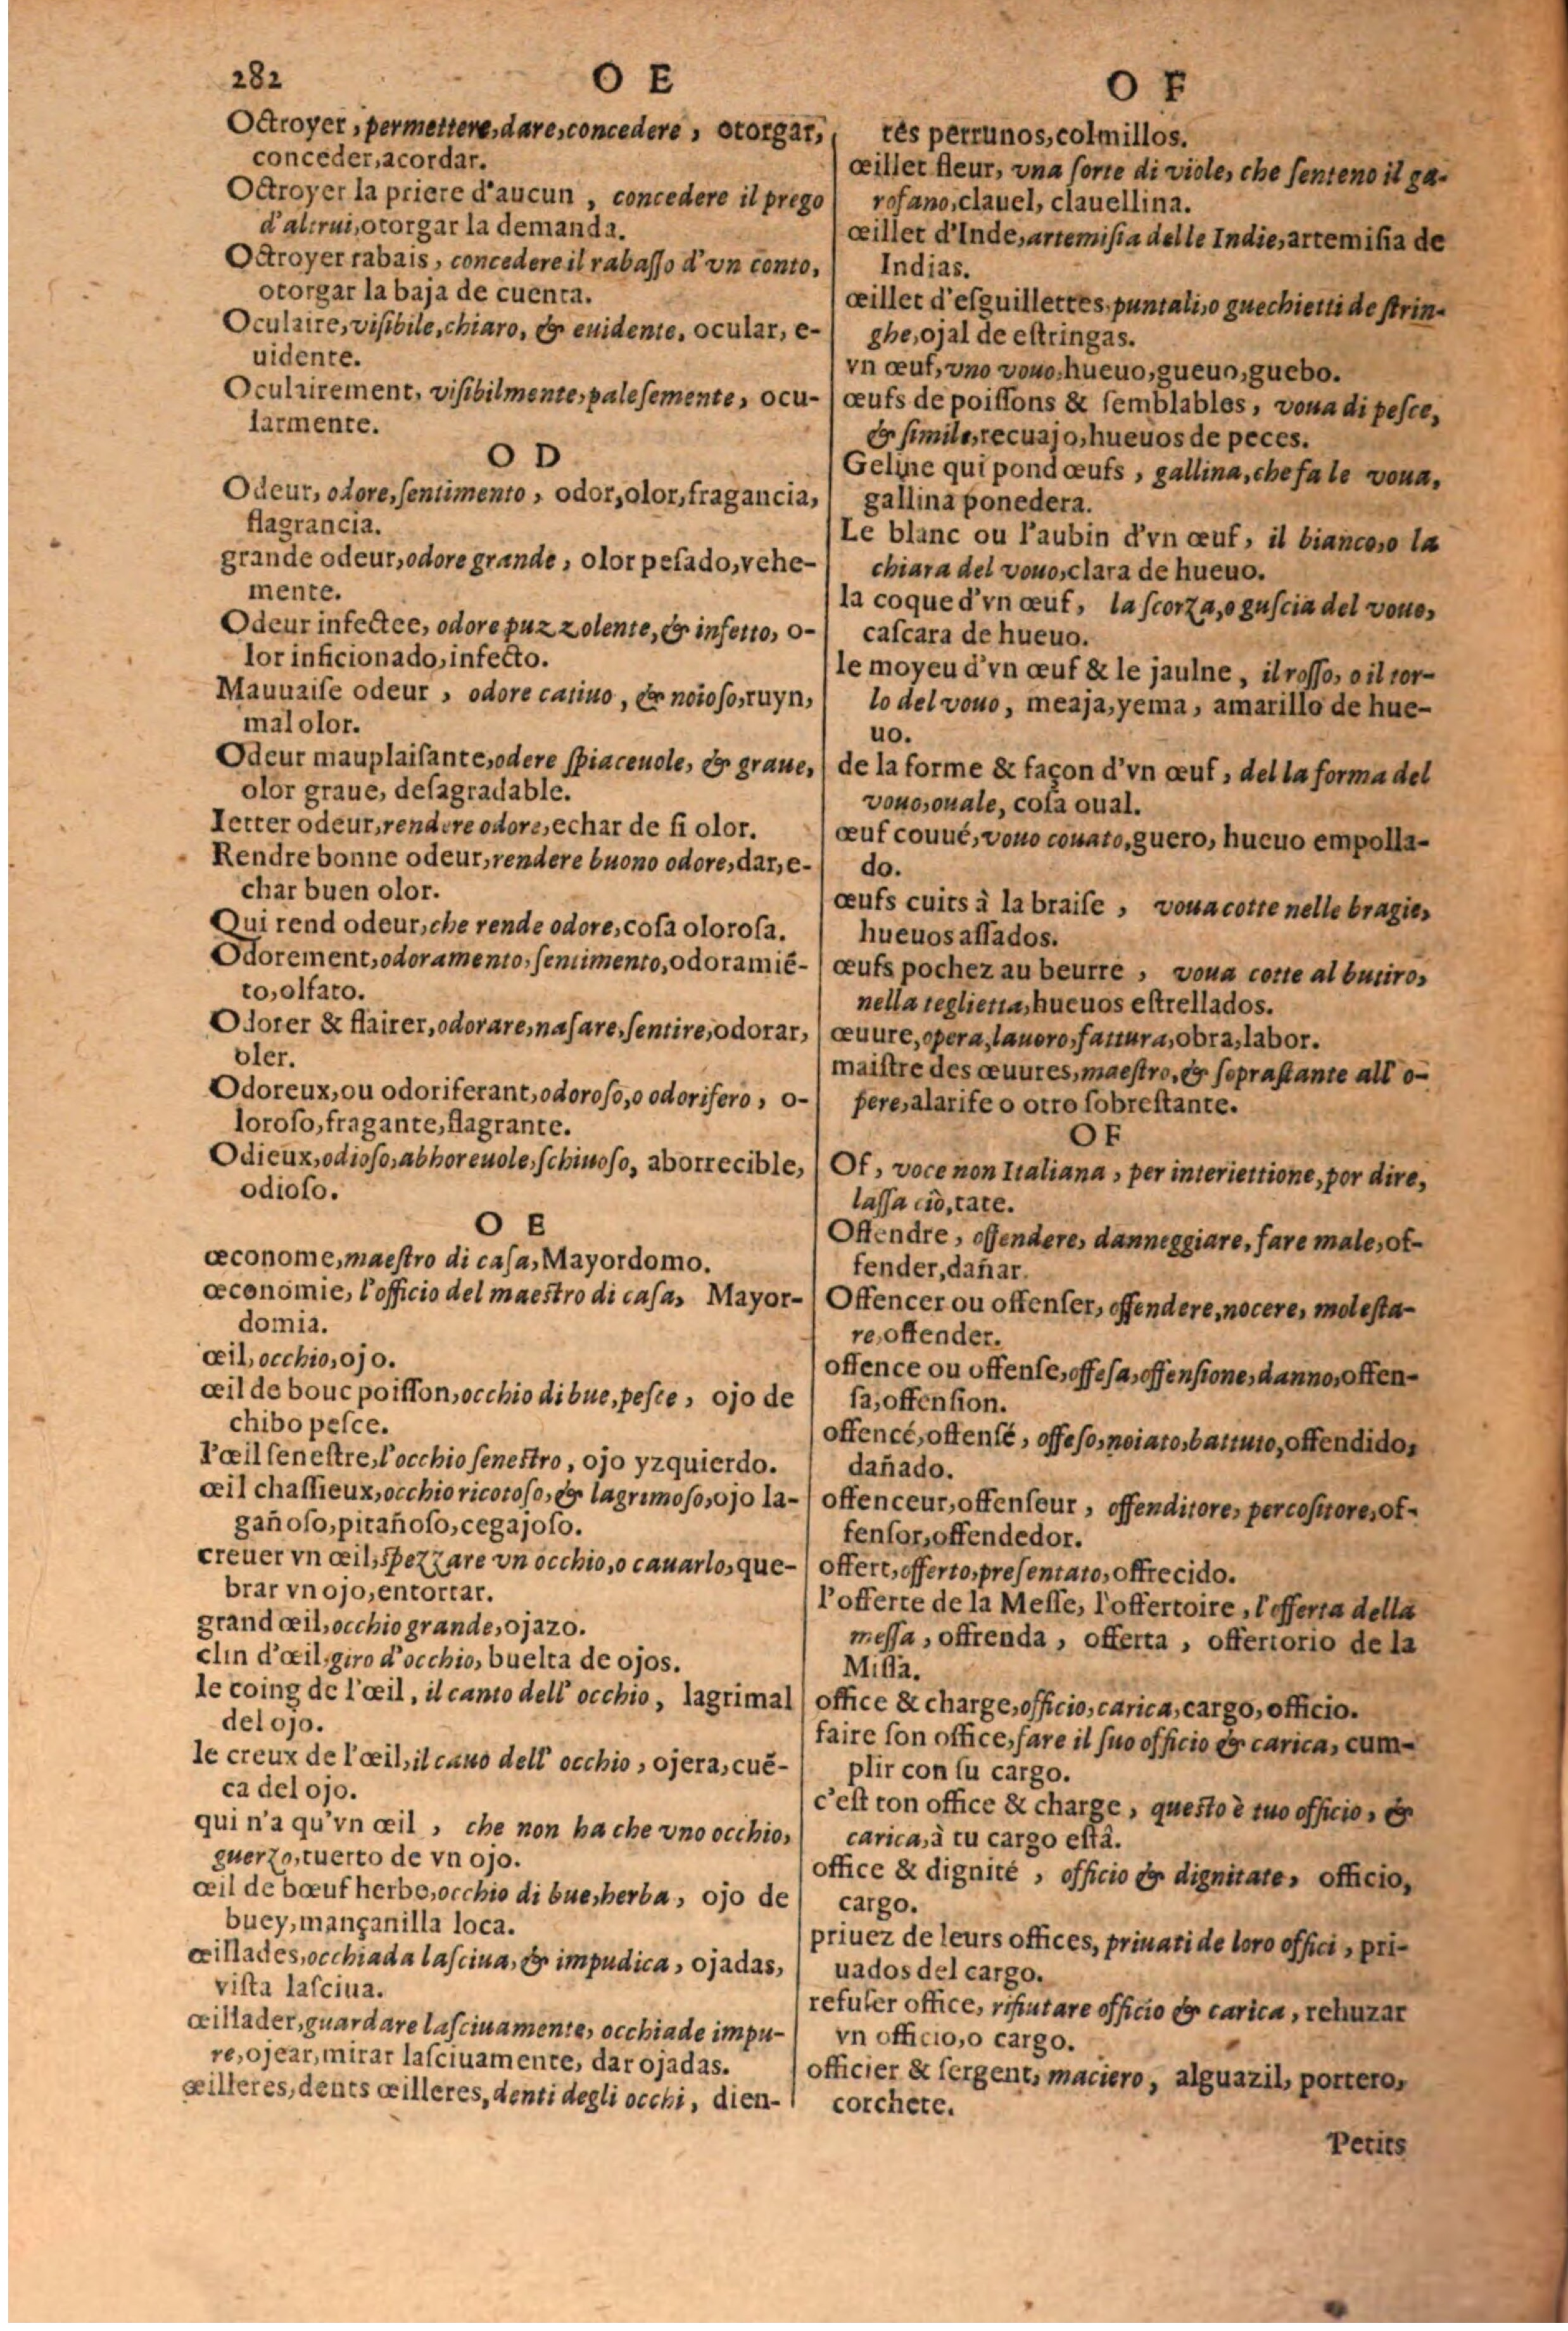 282
O E
Octroyer, permettere, dare, concedere, otorgar,
conceder, acordar.
Octroyer la priere d'aucun, concedere il prego
d'altrui, otorgar la demanda.
Octroyer rabais, concedere il rabasso d'vn conto,
otorgar la baja de cuenta.
Oculaire, visibile, chiaro, & euidente, ocular, e-
uidente.
Oculairement, visibilmente, palesemente, ocu-
larmente.
O D
Odeur, odore, sentimento, odor, olor, fragancia,
flagrancia.
grande odeur, odore grande, olor pesado, vehe-
mente.
Odeur infectee, odore puzzolente, & infetto, o-
lor inficionado, infecto.
Mauuaise odeur, odore catiuo, & noioso, ruyn,
mal olor.
Odeur mauplaisante, odere spiaceuole, & graue,
olor graue, desagradable.
Ietter odeur, rendere odore, echar de si olor.
Rendre bonne odeur, rendere buono odore, dar, e-
char buen olor.
Qui rend odeur, che rende odore, cosa olorosa.
Odorement, odoramento, sentimento, odoramiẽ-
to, olfato.
Odorer & flairer, odorare, nasare, sentire, odorar,
oler.
Odoreux, ou odoriferant, odoroso, o odorifero, o-
loroso, fragante, flagrante.
Odieux, odioso, abhoreuole, schiuoso, aborrecible,
odioso.
O E
œconome, maestro di casa, Mayordomo.
œconomie, l'officio del maestro di casa, Mayor-
domia.
œil, occhio, ojo.
œil de bouc poisson, occhio di bue, pesce, ojo de
chibo pesce.
l'œil senestre, l'occhio senestro, ojo yzquierdo.
œil chassieux, occhio ricotoso, & lagrimoso, ojo la-
gañoso, pitañoso, cegajoso.
creuer vn œil, spezzare vn occhio, o cauarlo, que-
brar vn ojo, entortar.
grand œil, occhio grande, ojazo.
clin d'œil, giro d'occhio, buelta de ojos.
le coing de l'œil, il canto dell' occhio, lagrimal
del ojo.
le creux de l'œil, il cauo dell' occhio, ojera, cuẽ-
ca del ojo.
qui n'a qu'vn œil, che non ha che vno occhio,
guerzo, tuerto de vn ojo.
œil de bœuf herbe, occhio di bue, herba, ojo de
buey, mançanilla loca.
œillades, occhiada lasciua, & impudica, ojadas,
vista lasciua.
œillader, guardare lasciuamente, occhiade impu-
re, ojear, mirar lasciuamente, dar ojadas.
œilleres, dents œilleres, denti degli occhi, dien-
O F
tes perrunos, colmillos.
œillet fleur, vna sorte di viole, che senteno il ga-
rofano, clauel, clauellina.
œillet d'Inde, artemisia delle Indie, artemisia de
Indias.
œillet d'esguillettes, puntali, o guechietti de strin-
ghe, ojal de estringas.
vn œuf, vno vouo, hueuo, gueuo, guebo.
œufs de poissons & semblables, voua di pesce,
& simile, recuajo, hueuos de peces.
Geline qui pond œufs, gallina, che fa le voua,
gallina ponedera.
Le blanc ou l'aubin d'vn œuf, il bianco, o la
chiara del vouo, clara de hueuo.
la coque d'vn œuf, la scorza, o guscia del vouo,
cascara de hueuo.
le moyeu d'vn œuf & le jaulne, il rosso, o il tor-
lo del vouo, meaja, yema, amarillo de hue-
uo.
de la forme & façon d'vn œuf, della forma del
vouo, ouale, cosa oual.
œuf couué, vouo couato, guero, hueuo empolla-
do.
œufs cuits à la braise, voua cotte nelle bragie,
hueuos assados.
œufs pochez au beurre, voua cotte al butiro,
nella teglietta, hueuos estrellados.
œuure, opera, lauoro, fattura, obra, labor.
maistre des œuures, maestro, & soprastante all' o-
pere, alarife o otro sobrestante.
OF
Of, voce non Italiana, per interiettione, por dire,
lassa ciò, tate.
Offendre, offendere, danneggiare, fare male, of-
fender, dañar.
Offencer ou offenser, offendere, nocere, molesta-
re, offender.
offence ou offense, offesa, offensione, danno, offen-
sa, offension.
offencé, offensé, offeso, noiato, battuto, offendido,
dañado.
offenceur, offenseur, offenditore, percositore, of-
fensor, offendedor.
offert, offerto, presentato, offrecido.
l'offerte de la Messe, l'offertoire, l'offerta della
messa, offrenda, offerta, offertorio de la
Missa.
office & charge, officio, carica, cargo, officio.
faire son office, fare il suo officio & carica, cum-
plir con su cargo.
c'est ton office & charge, questo è tuo officio, &
carica, à tu cargo està.
office & dignité, officio & dignitate, officio,
cargo.
priuez de leurs offices, priuati de loro offici, pri-
uados del cargo.
refuser office, rifiutare officio & carica, rehuzar
vn officio, o cargo.
officier & sergent, maciero, alguazil, portero,
corchete.
Petits